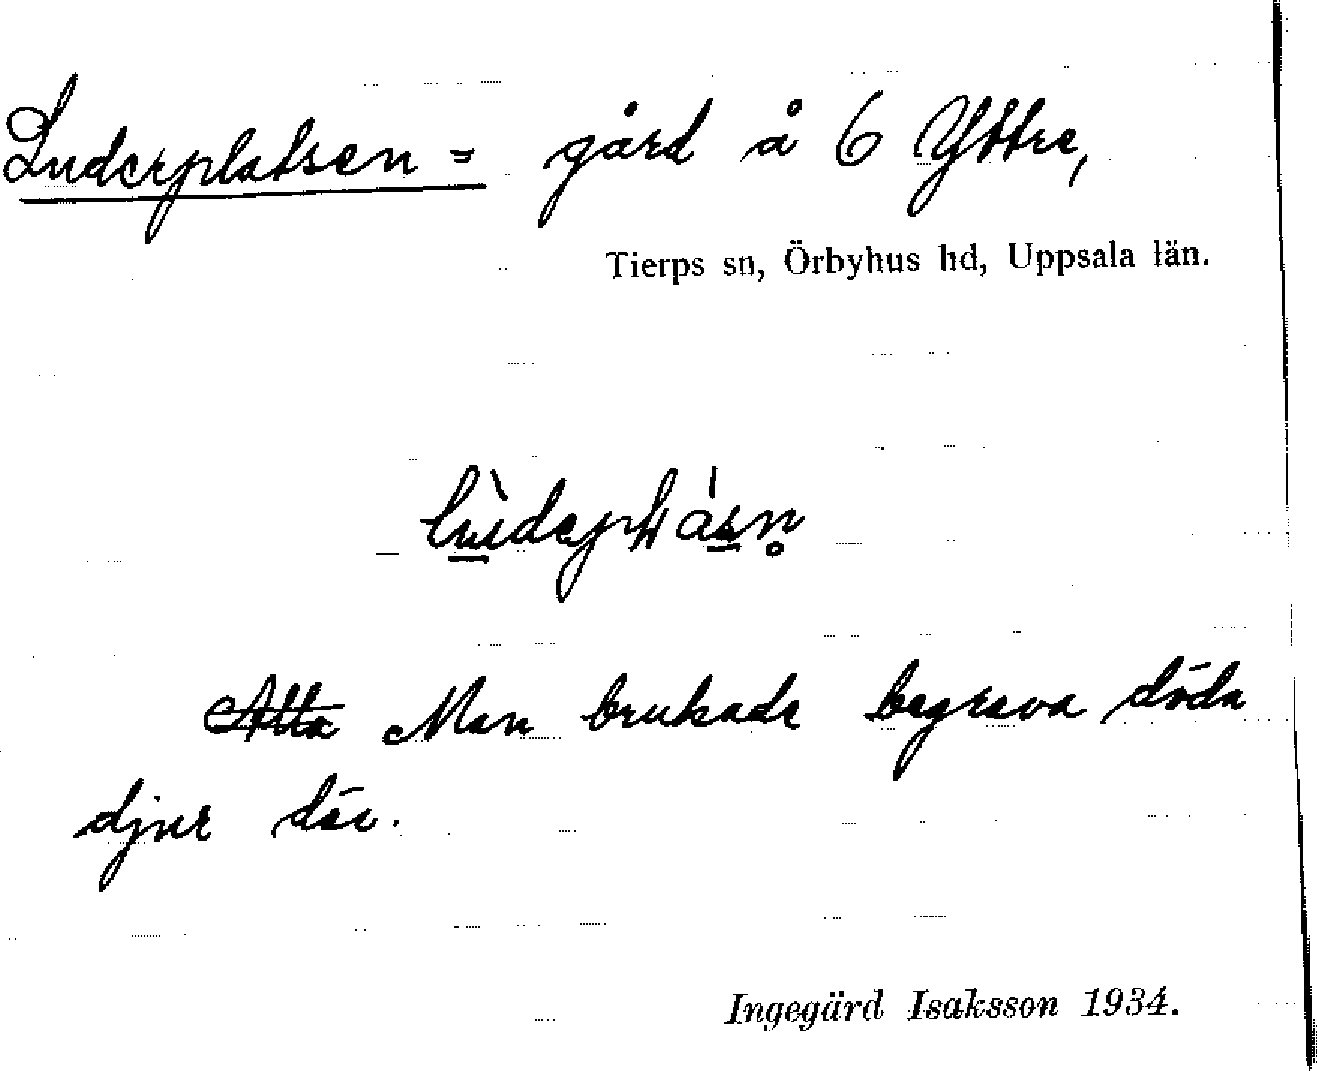 Luderplatsen = gård å 6 Yttre,
Tierps sn, Örbyhus hd, Uppsala län.
Man brukade begrava döda
djur där.
Ingegärd Isaksson 1934.